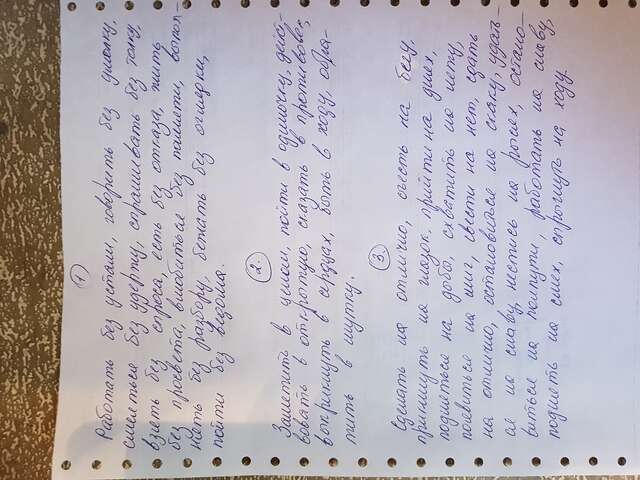 1
Работать без устали, говорить без умолку,
смеяться без удержу, спрашивать без толку,
взять без спроса, есть без отказа, жить
без просвета, влюбиться без памяти, выпол-
нять без разбору, бегать без оглядки,
пойти без ведома.
2.
Заметить в упор, пойти в одиночку, дейст-
вовать в открытую, сказать в противовес,
воскрикнуть в сердцах, быть в ходу, обра-
тить в шутку.
3.
Сделать на отлично, сесть на беду,
прикинуть на глазок, прийти на днях,
подняться на дыбо, схватить на лету,
появиться на миг, свести на нет, сдать
на отлично, остановиться на скаку, удать-
ся на славу, нестись на рысях, остано-
виться на полпути, работать на славу,
поднять на смех, спрыгнуть на ходу.